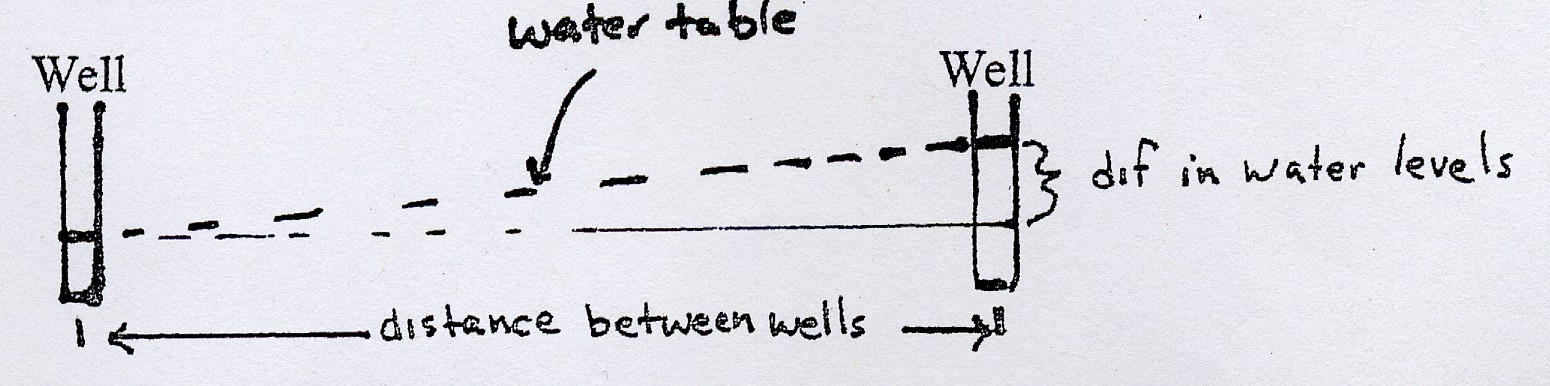 water table
Well
Well
dif in water levels
distance between wells